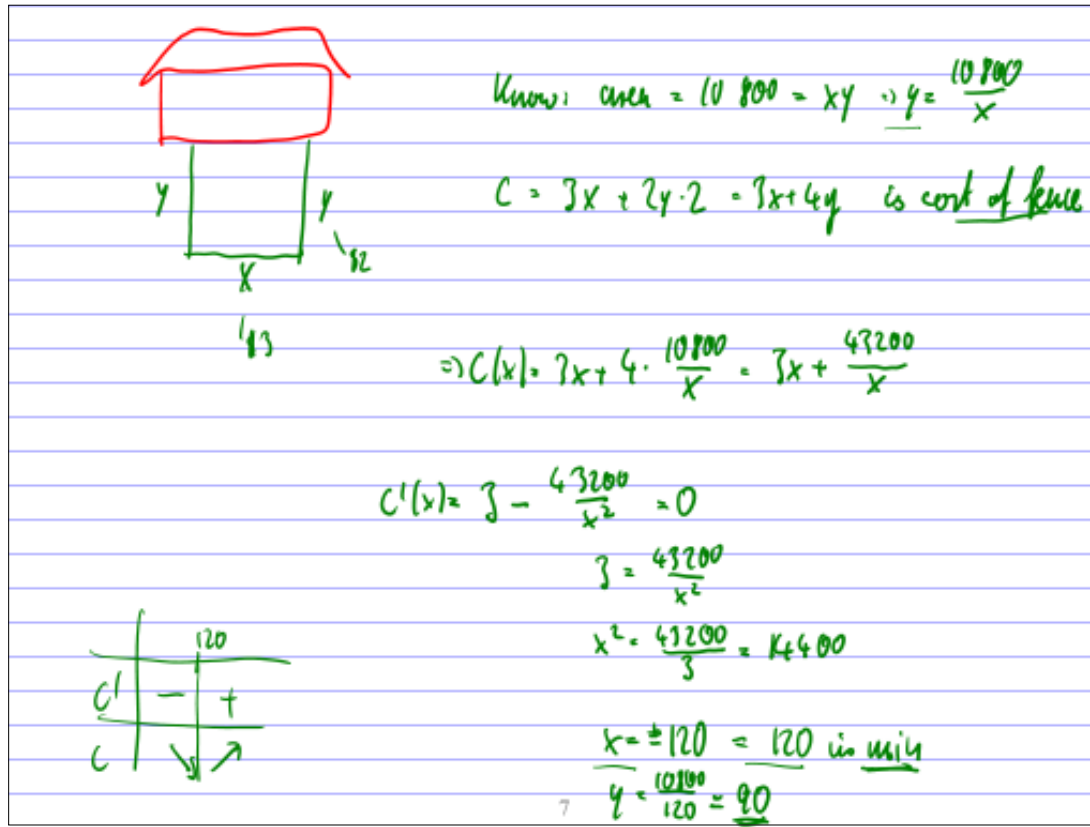 Know: area = 10 800 = xy => y = 10 800 / x
y y
C = 3x + 2y·2 = 3x + 4y is cost of fence
$2
x
$3
=> C(x) = 3x + 4 · 10800 / x = 3x + 43200 / x
C'(x) = 3 - 43200 / x² = 0
3 = 43200 / x²
x² = 43200 / 3 = 14400
120
C' - +
C ↘ ↗
x = ±120 = 120 is min
y = 10800 / 120 = 90
7